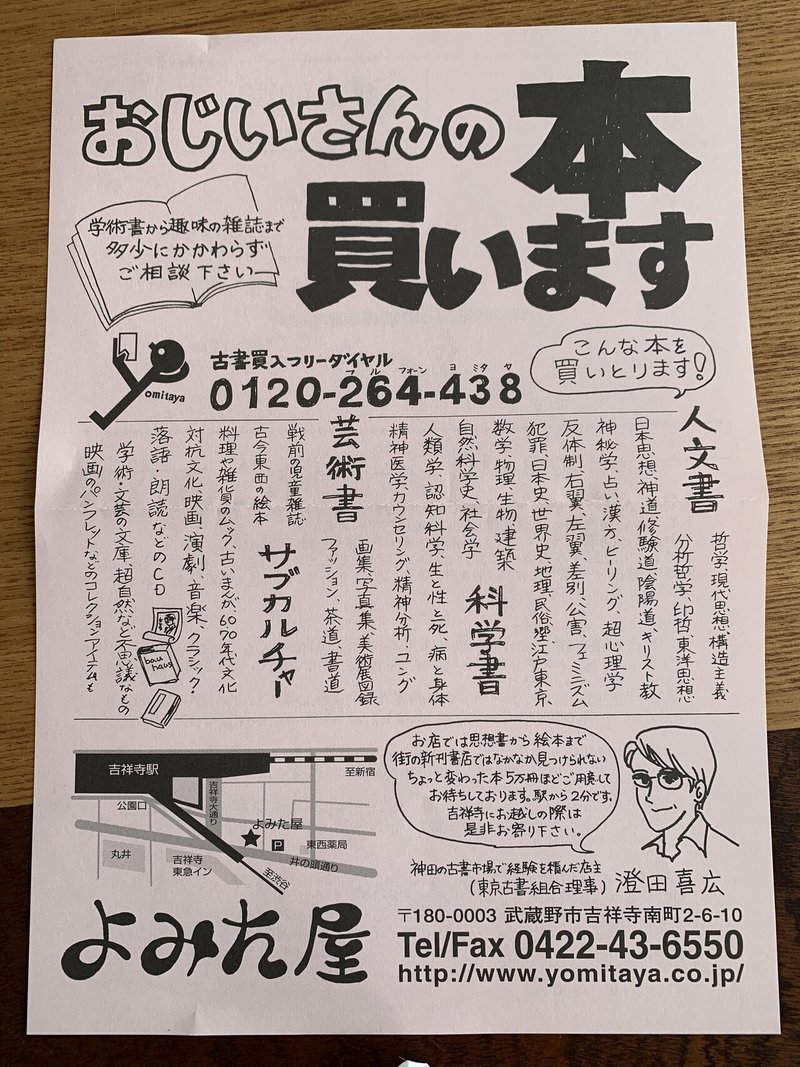 おじいさんの
本
買います
学術書から趣味の雑誌まで
多少にかかわらず
ご相談下さい
yomitaya
古書買入フリーダイヤル
フル フォーン ヨミタヤ
0120-264-438
こんな本を
買いとります!
人文書
哲学、現代思想、構造主義
分析哲学、印哲、東洋思想
日本思想、神道、修験道、陰陽道、ギリスト教
神秘学、占い、漢方、ヒーリング、超心理学
反体制、右翼、左翼、差別、公害、フェミニズム
犯罪、日本史、世界史、地理、民俗、郷江戸東京
科学書
数学、物理、生物、建築
自然科学史、社会学
人類学、認知科学、生と性と死、病と身体
精神医学、カウンセリング、精神分析、ユング
芸術書
画集、写真集、美術展図録
ファッション、茶道、書道
戦前の児童雑誌
古今東西の絵本
サブカルチャー
料理や雑貨のムック、古いまんが、60 70年代文化
対抗文化、映画、演劇、音楽、クラシック・
落語・朗読などのCD
学術・文芸の文庫、超自然など不思議なもの
映画のパンフレットなどのコレクションアイテムも
bau
haus
吉祥寺駅
至新宿
公園口
吉祥寺大通り
よみた屋
P
東西薬局
丸井
吉祥寺
東急イン
井の頭通り
至渋谷
お店では思想書から絵本まで
街の新刊書店ではなかなか見つけられない
ちょっと変わった本5万冊ほどご用意して
お待ちしております。駅から2分です。
吉祥寺にお越しの際は
是非お寄り下さい。
神田の古書市場で経験を積んだ店主
(東京古書組合理事) 澄田喜広
よみた屋
〒180-0003 武蔵野市吉祥寺南町2-6-10
Tel/Fax 0422-43-6550
http://www.yomitaya.co.jp/